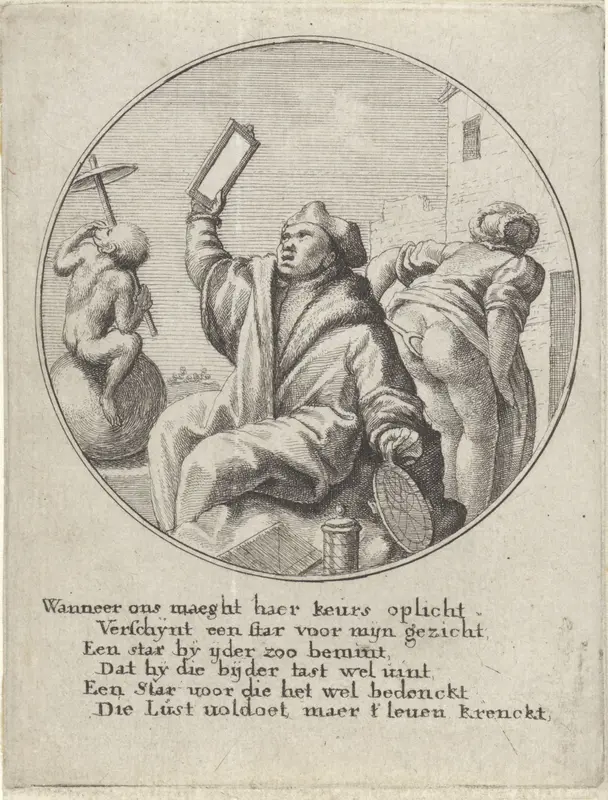 Wanneer ons maeght haer keurs oplicht
Verschÿnt een star voor mijn gezicht,
Een star bÿ ÿder zoo bemint,
Dat hÿ die bijder tast wel uint,
Een Star uoor die het wel bedenckt
Die Lust uoldoet, maer t' leuen krenckt,